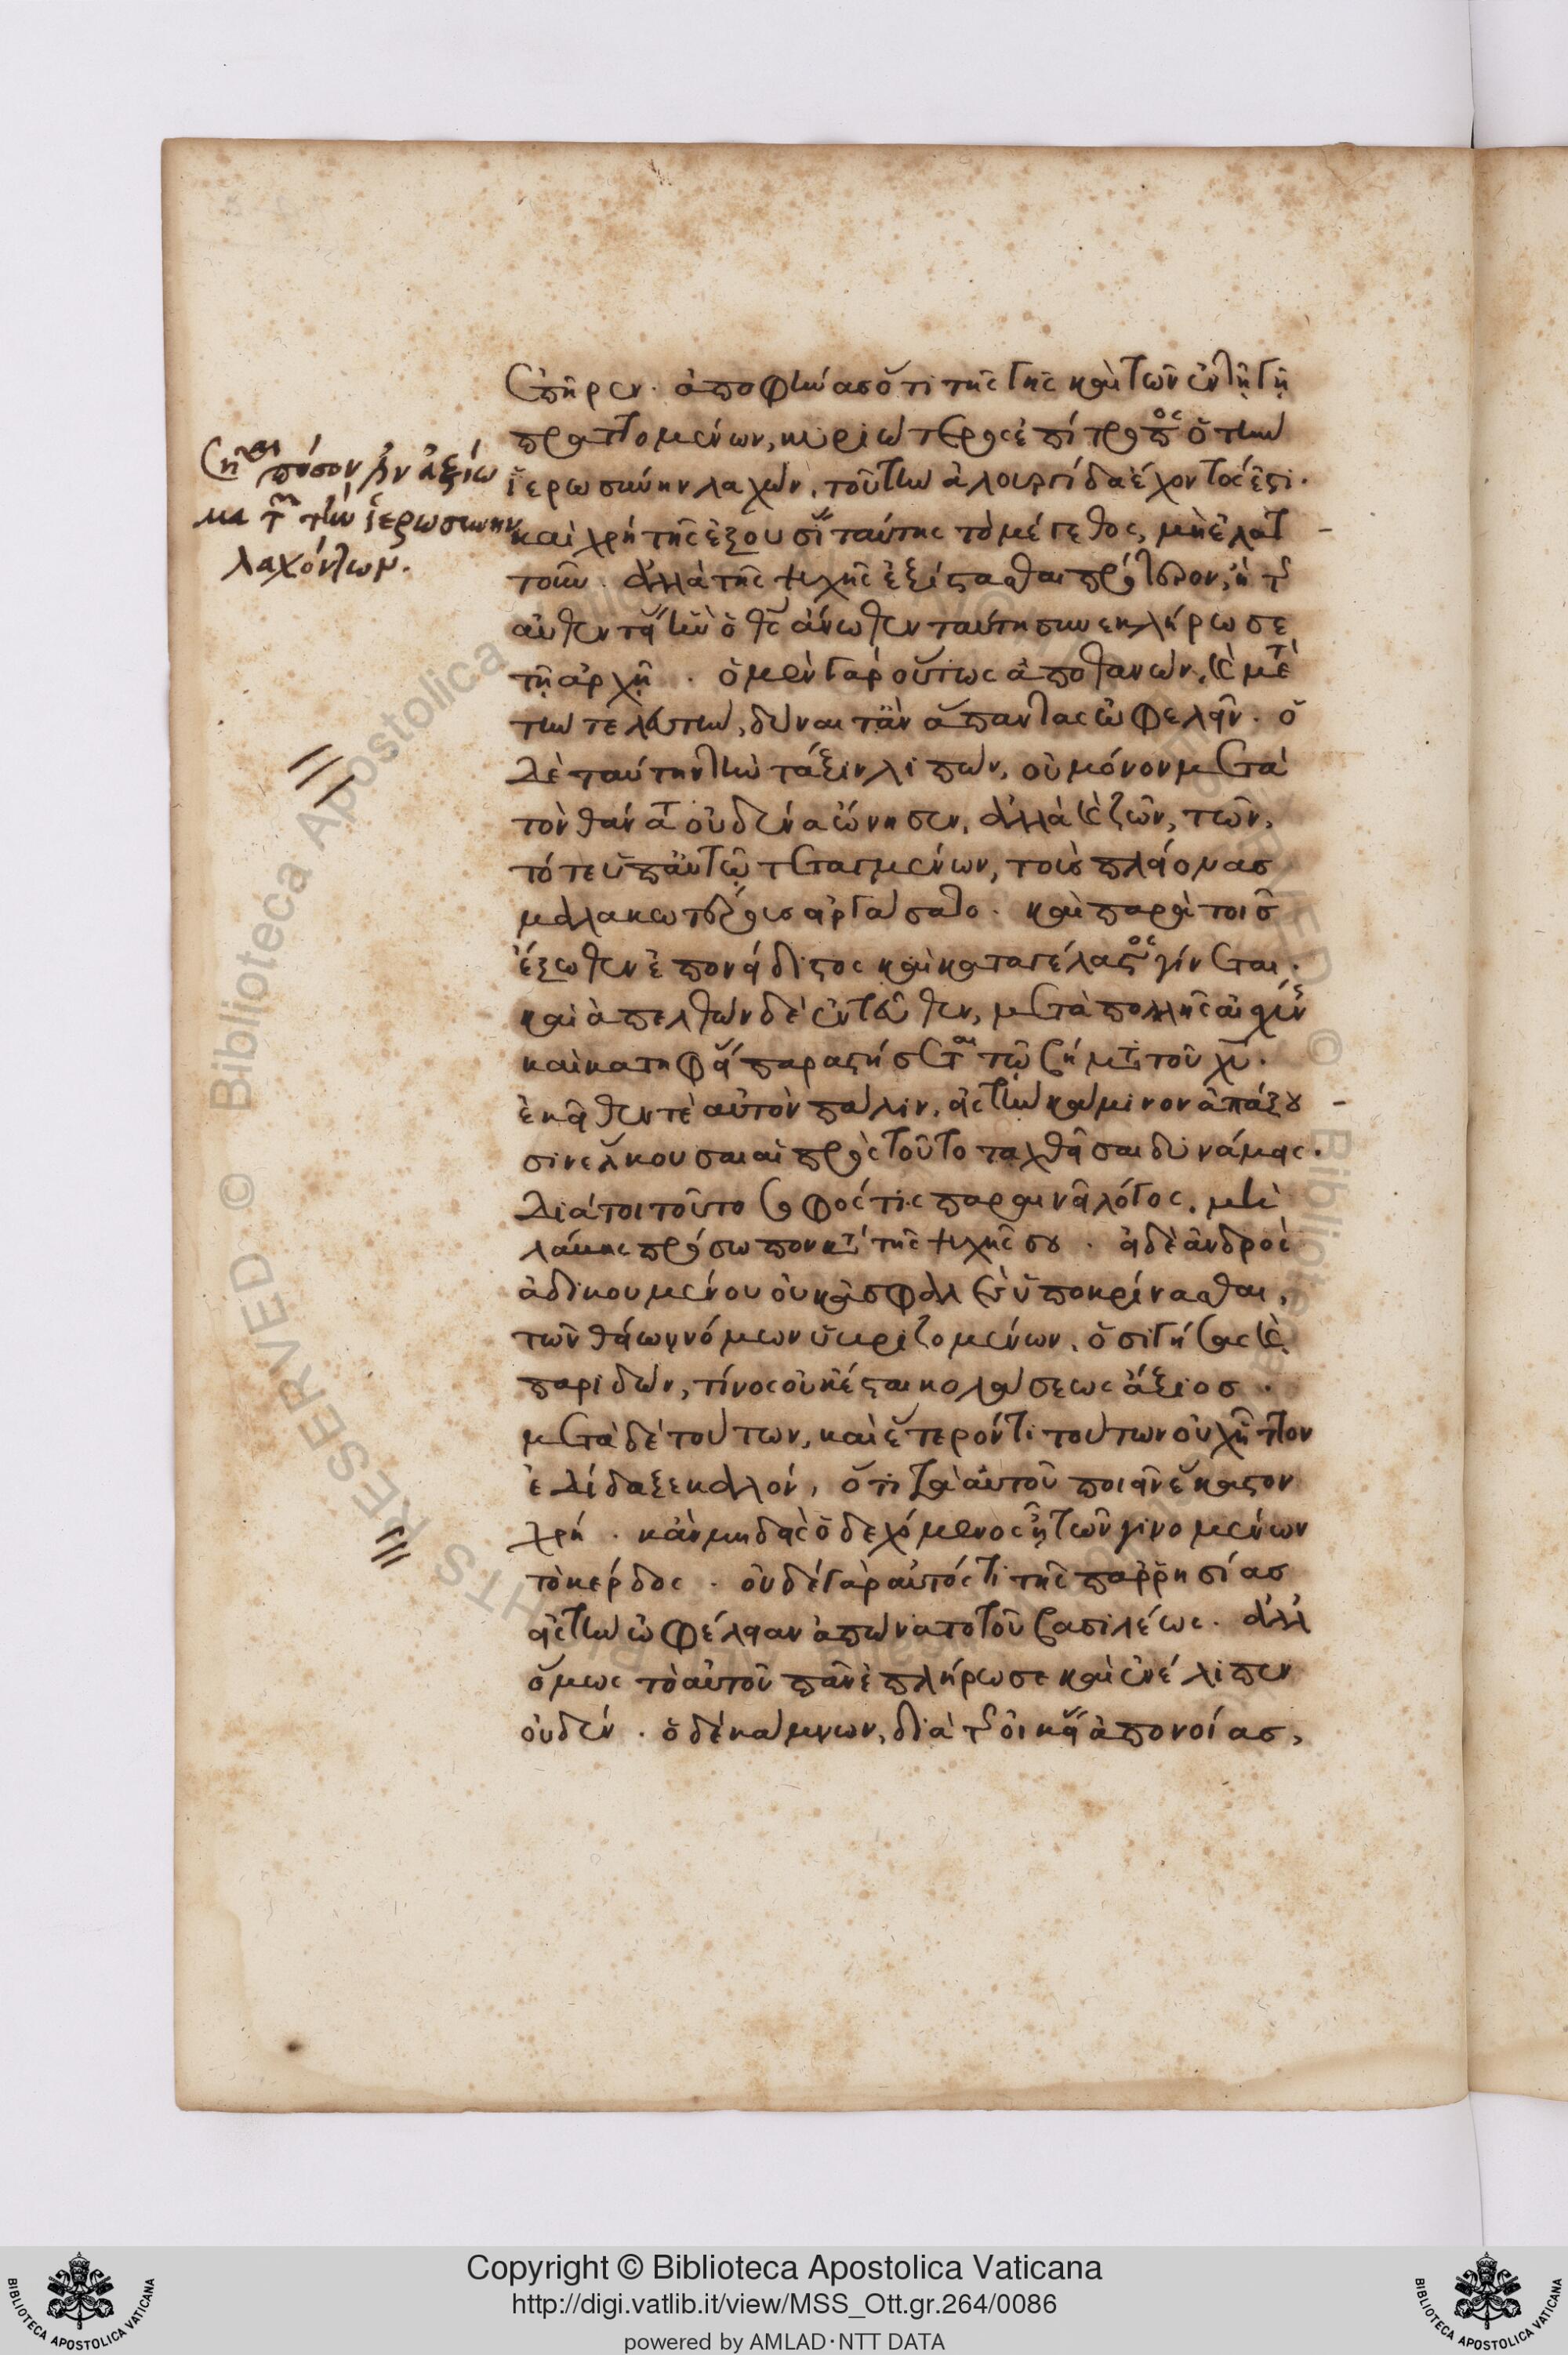 ἐπῆρεν. ἀποφήνας ὅτι τῆς γῆς καὶ τῶν ἐν τῇ γῇ
πραττομένων, κυριώτερος ἐπίτροπος ὁ τὴν
ἱερωσύνην λαχὼν, τοῦ τὴν ἁλουργίδα ἔχοντός ἐστι.
καὶ χρὴ τῆς ἐξουσίας ταύτης τὸ μέγεθος, μὴ ἐλατ
τοῦν. ἀλλὰ τῆς ψυχῆς ἐξίστασθαι πρότερον, ἢ τῆς
αὐθεντείας ἣν ὁ θς ἄνωθεν ταύτῃ συνεκλήρωσε
τῇ ἀρχῇ. ὁ μὲν γὰρ οὕτως ἀποθανὼν, καὶ μετὰ
τὴν τελευτὴν, δύναιτ ἂν ἅπαντας ὠφελεῖν. ὁ
δὲ ταύτην τὴν τάξιν λιπὼν, οὐ μόνον μετὰ
τὸν θάνατον οὐδένα ὤνησεν, ἀλλὰ καὶ ζῶν, τῶν
τότε ὑπ αὐτῷ τεταγμένων, τοὺς πλείονας
μαλακωτέρους εἰργάσατο. καὶ παρὰ τοῖς
ἔξωθεν ἐπονείδιστος καὶ καταγέλαστος γίνεται.
καὶ ἀπελθὼν δὲ ἐντεῦθεν, μετὰ πολλῆς αἰσχύνης
καὶ κατηφείας παραστήσεται τῷ βήματι τοῦ χυ.
ἐκεῖθέν τε αὐτὸν πάλιν, εἰς τὴν κάμινον ἀπάξου
σιν ἕλκουσαι αἱ πρὸς τοῦτο ταχθεῖσαι δυνάμεις.
Διά τοι τοῦτο σοφός τις παραινεῖ λόγος. μὴ
λάβῃς πρόσωπον κατὰ τῆς ψυχῆς σου. εἰ δὲ ἀνδρὸς
ἀδικουμένου οὐκ ἀσφαλὲς ὑποκρίνασθαι,
τῶν θείων νόμων ὑβριζομένων, ὁ σιγήσας καὶ
παριδὼν, τίνος οὐκ ἔσται κολάσεως ἄξιος.
μετὰ δὲ τούτων, καὶ ἕτερόν τι τούτων οὐχ ἧττον
ἐδίδαξε καλόν, ὅτι τὰ αὑτοῦ ποιεῖν ἕκαστον
χρή. κἂν μηδεὶς ὁ δεχόμενος ᾖ τῶν γινομένων
τὸ κέρδος. οὐδὲ γὰρ αὐτός τι τῆς παρρησίας
εἰς τὴν ὠφέλειαν ἀπώνατο τοῦ βασιλέως. ἀλλ
ὅμως τὸ αὑτοῦ πᾶν ἐπλήρωσε καὶ ἐνέλιπεν
οὐδέν. ὁ δὲ κάμνων, διὰ τῆς οἰκείας ἀπονοίας,
Ση πόσον ἦν ἀξίω
μα τῶν τὴν ἱερωσύνην
λαχόντων.
Copyright © Biblioteca Apostolica Vaticana
http://digi.vatlib.it/view/MSS_Ott.gr.264/0086
powered by AMLAD·NTT DATA